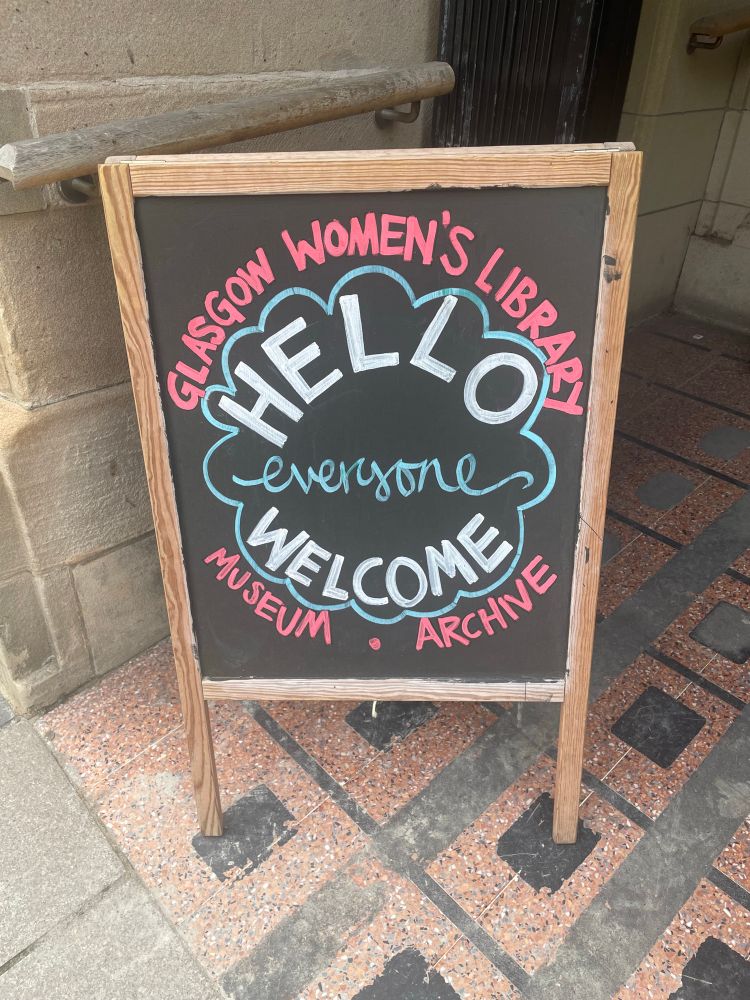 GLASGOW WOMEN'S LIBRARY
HELLO
everyone
WELCOME
MUSEUM • ARCHIVE